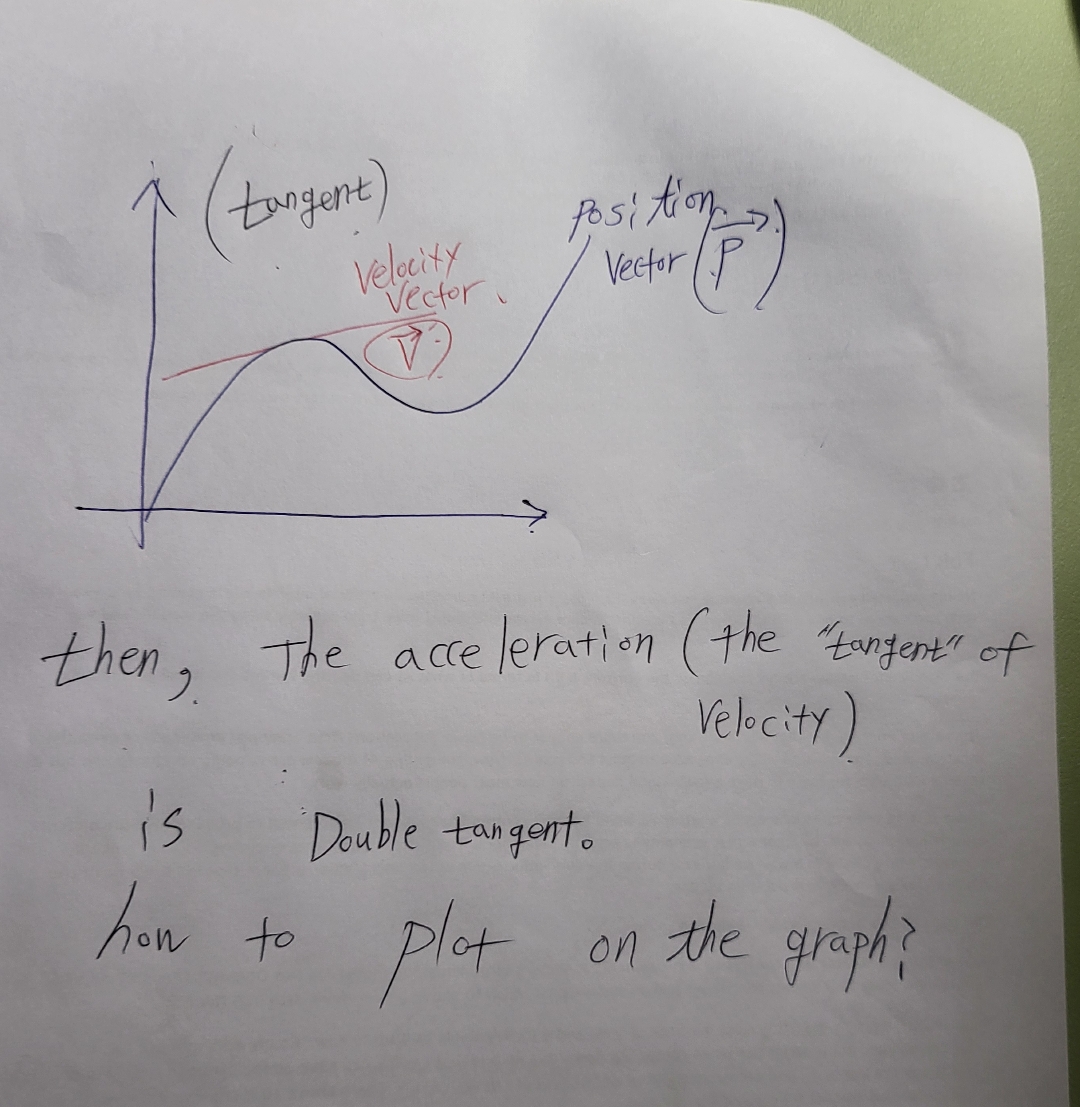 (tangent)
Position
Vector (P)
Velocity
Vector
V
then, The acceleration (the "tangent" of
Velocity)
is Double tangent.
how to plot on the graph?